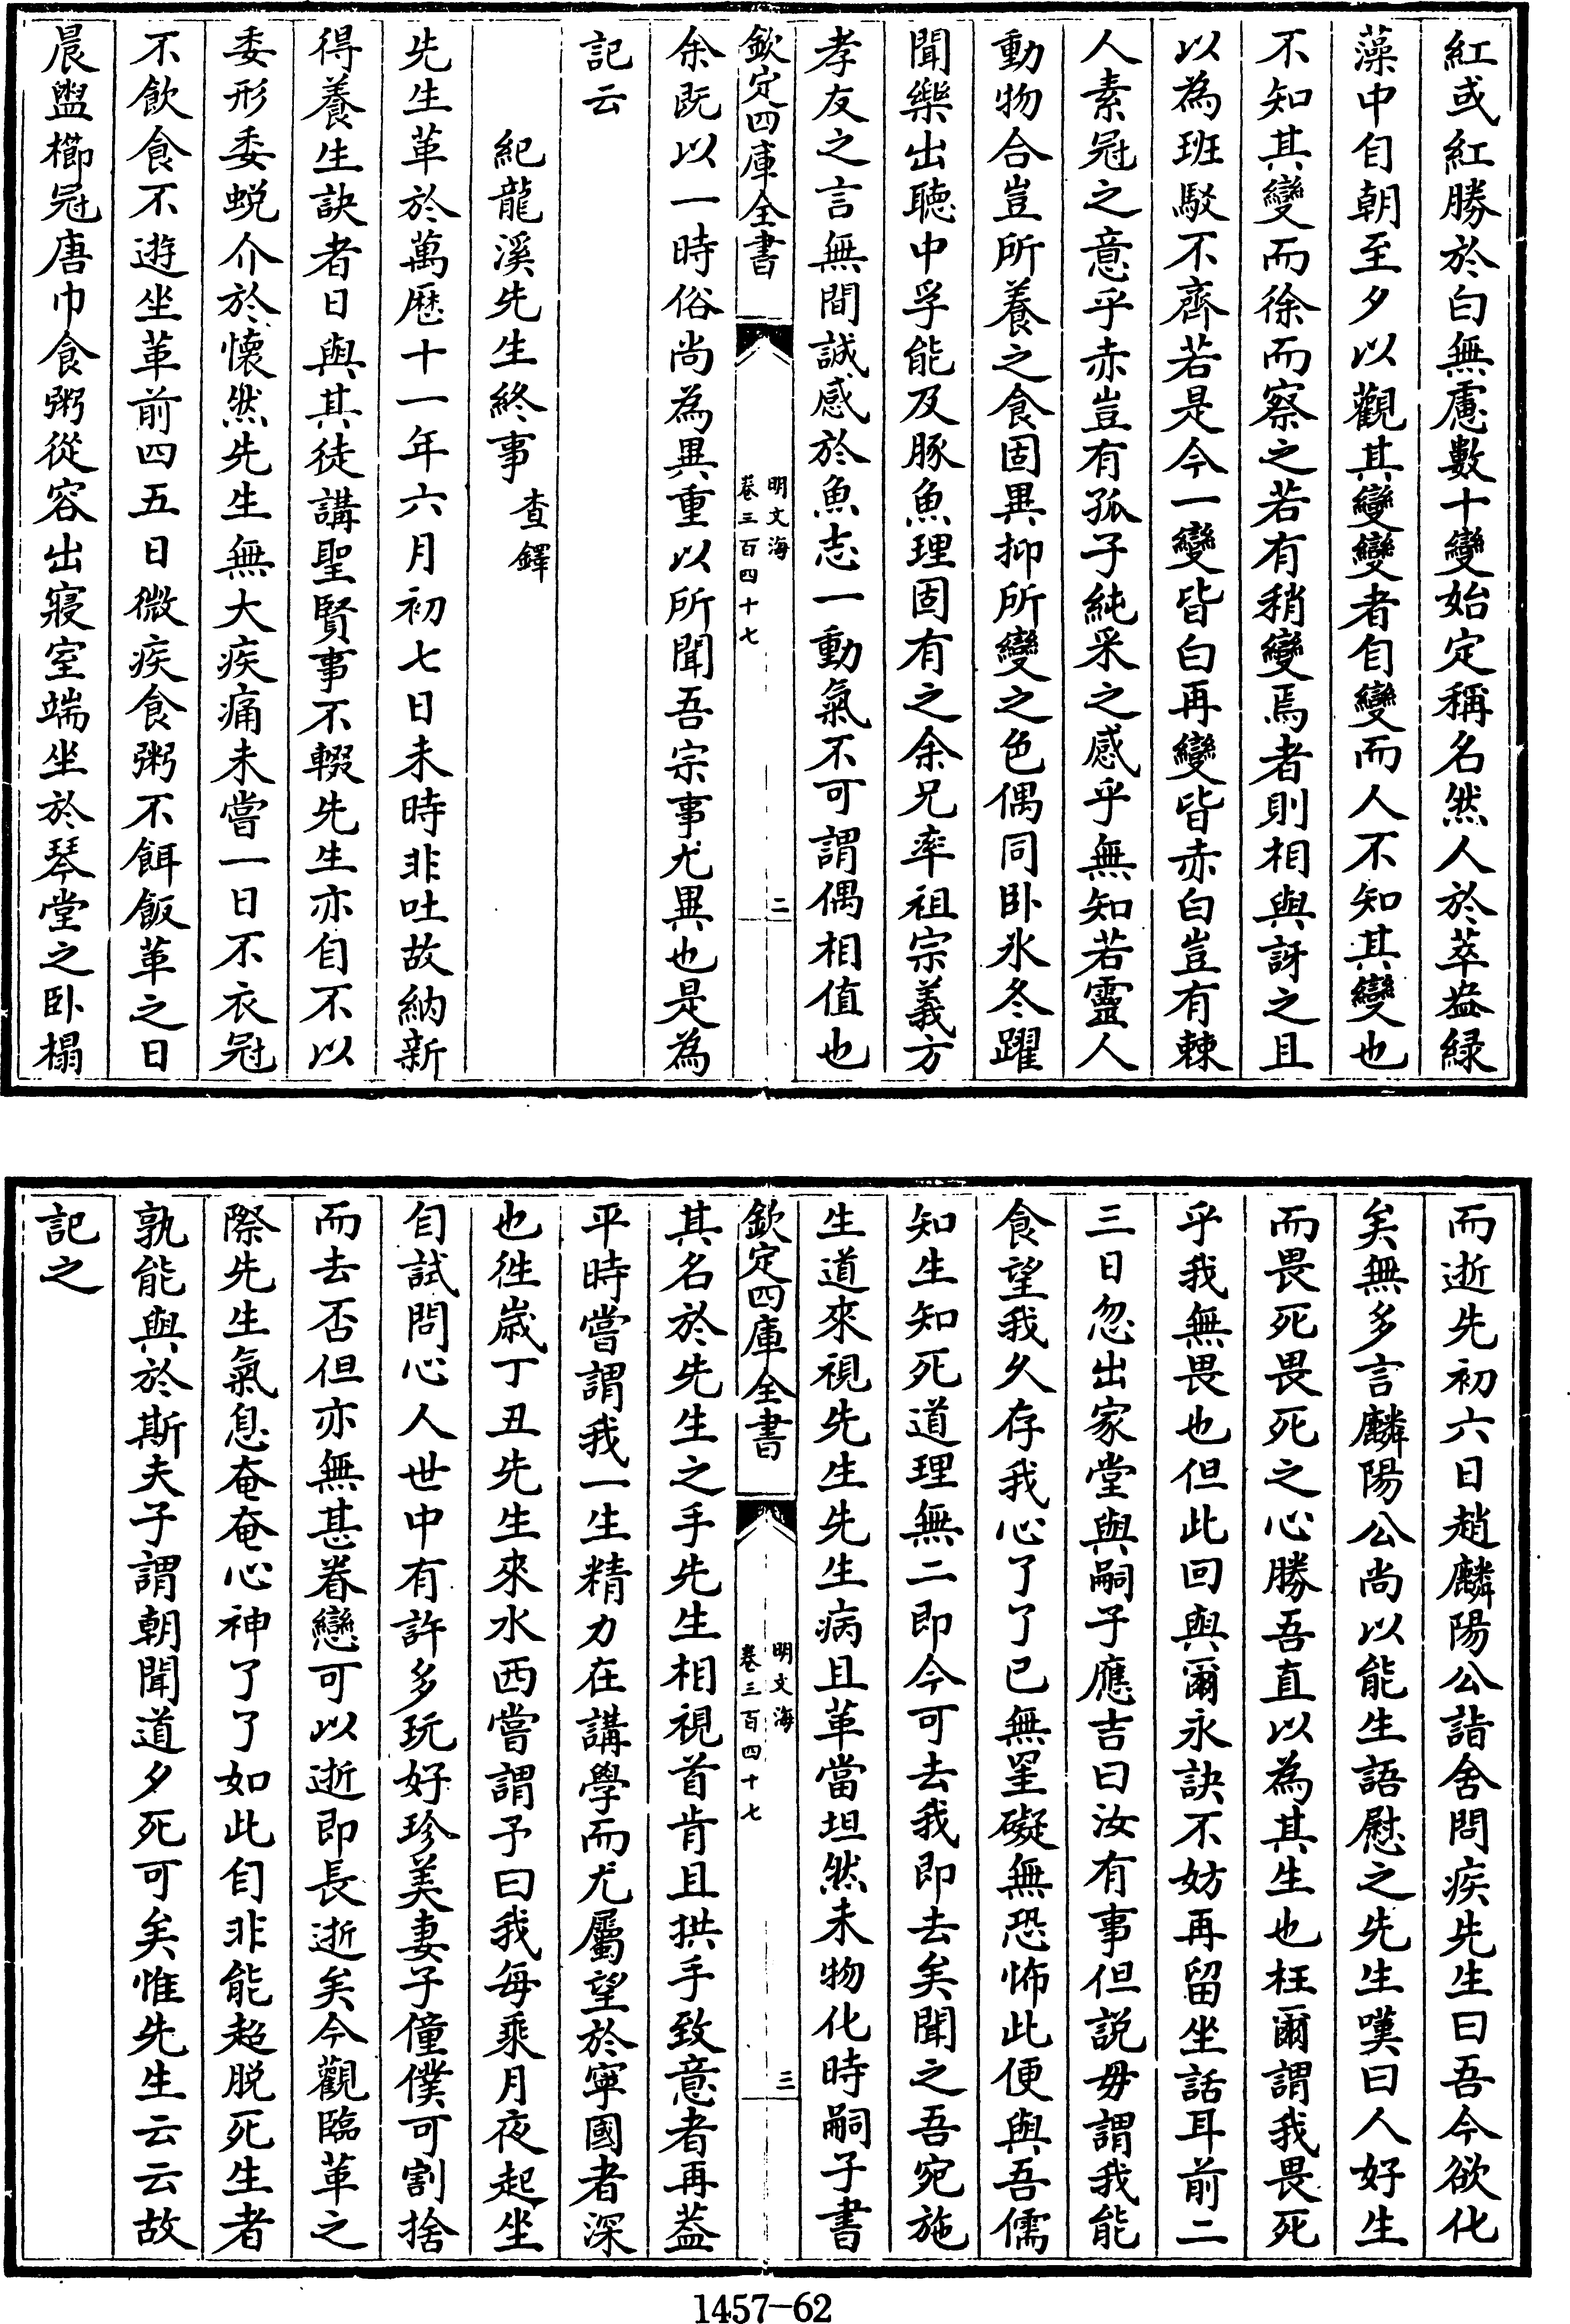 紅或紅勝於白無慮數十變始定稱名然人於萃盎緑
藻中自朝至夕以觀其變變者自變而人不知其變也
不知其變而徐而察之若有稍變焉者則相與訝之且
以為班駁不齊若是今一變皆白再變皆赤白豈有棘
人素冠之意乎赤豈有孤子純采之感乎無知若靈人
動物合豈所養之食固異抑所變之色偶同卧氷冬躍
聞樂出聴中孚能及豚魚理固有之余兄率祖宗義方
孝友之言無間誠感於魚志一動氣不可謂偶相值也
欽定四庫全書
明文海
卷三百四十七
二
余既以一時俗尚為異重以所聞吾宗事尤異也是為
記云
紀龍溪先生終事 查鐸
先生革於萬歷十一年六月初七日未時非吐故納新
得養生訣者日與其徒講聖賢事不輟先生亦自不以
委形委蜕介於懷然先生無大疾痛未嘗一日不衣冠
不飲食不遊坐革前四五日微疾食粥不餌飯革之日
晨盥櫛冠唐巾食粥從容出寢室端坐於琴堂之卧榻
而逝先初六日趙麟陽公詣舍問疾先生曰吾今欲化
矣無多言麟陽公尚以能生語慰之先生嘆曰人好生
而畏死畏死之心勝吾直以為其生也枉爾謂我畏死
乎我無畏也但此回與爾永訣不妨再留坐話耳前二
三日忽出家堂與嗣子應吉曰汝有事但説毋謂我能
食望我久存我心了了已無罣礙無恐怖此便與吾儒
知生知死道理無二即今可去我即去矣聞之吾宛施
生道來視先生先生病且革當坦然未物化時嗣子書
欽定四庫全書
明文海
卷三百四十七
三
其名於先生之手先生相視首肯且拱手致意者再葢
平時嘗謂我一生精力在講學而尤屬望於寧國者深
也徃嵗丁丑先生來水西嘗謂予曰我每乘月夜起坐
自試問心人世中有許多玩好珍美妻子僮僕可割捨
而去否但亦無甚眷戀可以逝即長逝矣今觀臨革之
際先生氣息奄奄心神了了如此自非能超脱死生者
孰能與於斯夫子謂朝聞道夕死可矣惟先生云云故
記之
1457-62